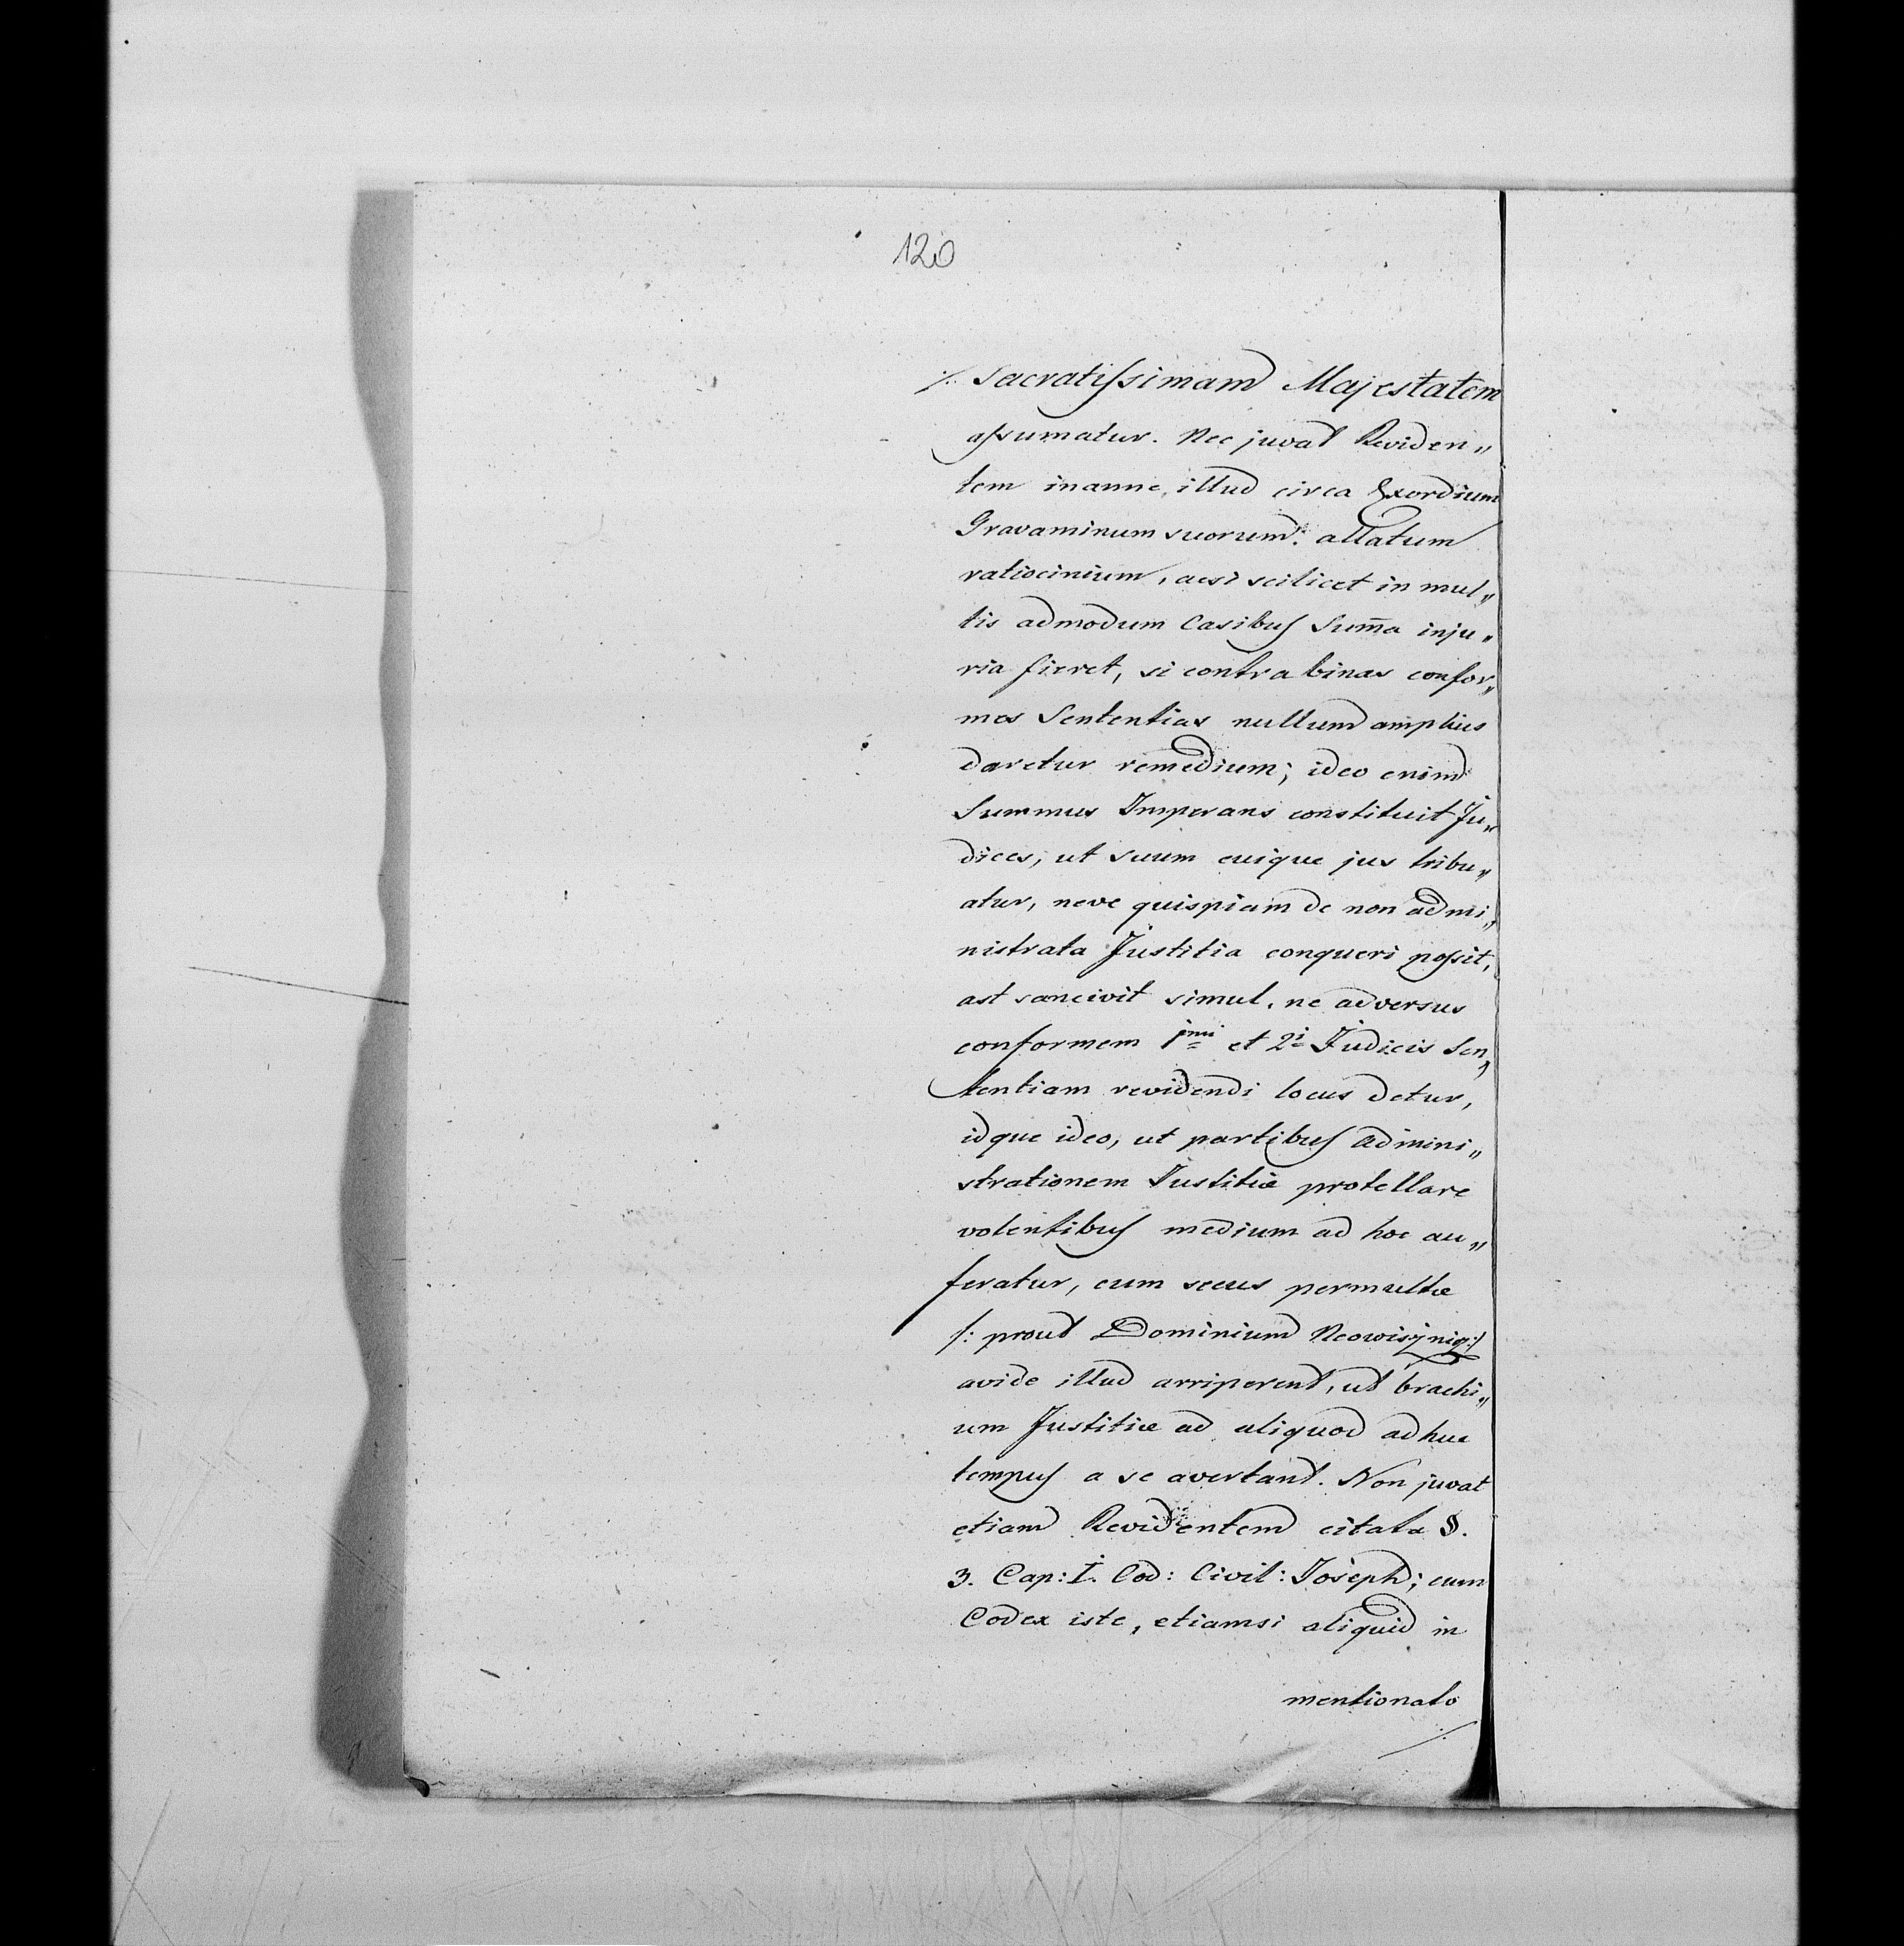 120
./. Sacratissimam Majestatem
assumatur. Nec juvat Reviden„
tem inanne, illud circa Exordium
Gravaminum suorum: allatum
ratiocinium, acsi scilicet in mul„
tis admodum Casibus Sum̄a inju„
ria fieret, si contra binas confor„
mes Sententias nullum amplius
daretur remedium; ideo enim
Summus Imperans constituit Ju„
dices, ut suum cuique jus tribu„
atur, neve quispiam de non admi„
nistrata Justitia conqueri possit,
ast sancivit simul, ne adversus
conformem 1mi et 2i Judicis Sen„
tentiam revidendi locus detur,
idque ideo, ut partibus admini„
strationem Justitiæ protellare
volentibus medium ad hoc au„
feratur, cum secus permultæ
/: prout Dominium :/
avide illud arriperent, ut brachi„
um Justitiæ ad aliquod adhuc
tempus a se avertant. Non juvat
etiam Revidentem citata §.
3. Cap: I. Cod: Civil: Joseph; cum
Codex iste, etiamsi aliquid in
mentionato
./.